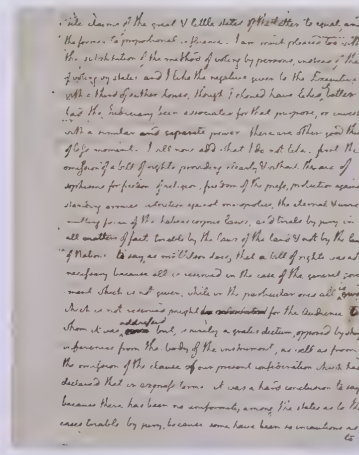 claims of the great & little states of the latter to equal, and
the former to proportional influence. I am much pleased too with
the substitution of the method of voting by persons, instead of that
of voting by states: and I like the negative given to the Executive
with a third of either house, though I should have liked it better
had the Judiciary been associated for that purpose, or invested
with a similar and separate power. there are other good things
of less moment. I will now add what I do not like. first the
omission of a bill of rights providing clearly & without the aid of
sophisms for freedom of religion, freedom of the press, protection against
standing armies, restriction against monopolies, the eternal & unre-
mitting force of the habeas corpus laws, and trials by jury in
all matters of fact triable by the laws of the land & not by the law
of Nations. to say, as mr Wilson does, that a bill of rights was not
necessary because all is reserved in the case of the general govern-
ment which is not given, while in the particular ones all is given
which is not reserved might do for the Audience to
whom it was addressed but, is surely a gratis dictum, opposed by strong
inferences from the body of the instrument, as well as from
the omission of the clause of our present confederation which had
declared that in express terms. it was a hard conclusion to say
because there has been no uniformity among the states as to the
cases triable by jury, because some have been so incautious as
to